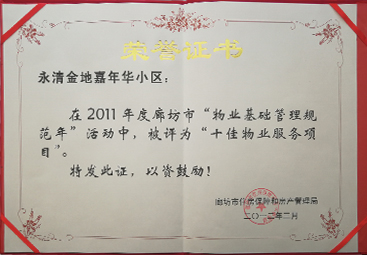 荣誉证书
永清金地嘉年华小区：
在2011年度廊坊市“物业基础管理规
范年”活动中，被评为“十佳物业服务项
目”。
特发此证，以资鼓励！
廊坊市住房保障和房产管理局
二〇一二年二月